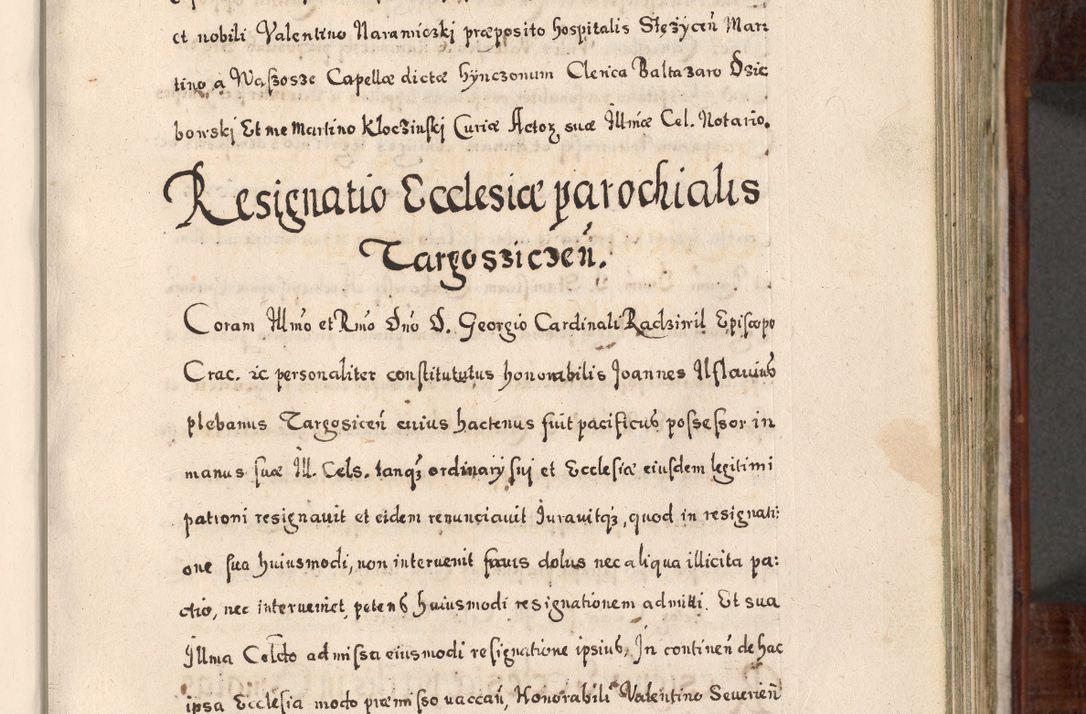 et nobili Valentino Naramiczki præposito hospitalis Stężyceñ Mar
tino a Waszosze Capellæ dictæ hynczonum Clerica Baltazaro Dzie
bowskj Et me Martino Kloczinskj Curiæ Actoꝝ suæ Illmæ Cel. Notario.
Resignatio Ecclesiæ parochialis
Targosziczeñ.
Coram Illmo et Rmo Dno D. Georgio Cardinali Radziwil Episcopo
Crac. ic personaliter constitututus honorabilis Joannes
plebanus Targosiceñ cuius hactenus fuit pacificus possessor in
manus suæ Ill. Cels. tanqꝫ ordinarij sui et Ecclesiæ eiusdem legitimi
patroni resignauit et eidem renunciauit Iurauitqꝫ, quod in resignati:
one sua huiusmodi, non interuenit fraus dolus nec aliqua illicita pa:
ctio, nec interueniet, petens huiusmodi resignationem admitti. Et sua
Illma Celdo admissa eiusmodi resignatione ipsius, In contineñ de hac
ipsa Ecclesia modo præmisso vaccañ, Honorabili Valentino Seucrieñ